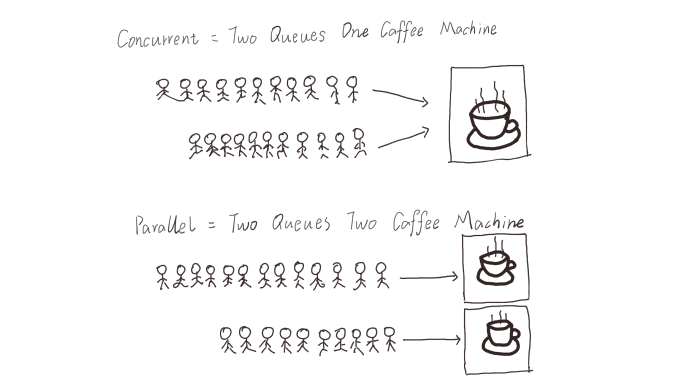 Concurrent = Two Queues One Coffee Machine
Parallel = Two Queues Two Coffee Machine